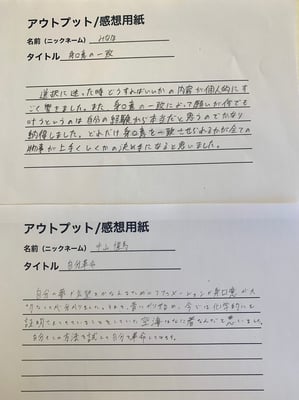 アウトプット/感想用紙
名前（ニックネーム） みなほ
タイトル 身口意の一致
選択に迷った時どうすればいいかの内容が個人的にす
ごく響きました。また、身口意の一致によって願いが何でも
叶うというのは自分の経験から本当だと思うのでかなり
納得しました。どれだけ身口意を一致させられるかが全ての
物事が上手くいくかの決め手になると思いました。
アウトプット/感想用紙
名前（ニックネーム） 中山
タイトル 自分革命
自分の夢や志望をかなえるためにアファメーションや身口意が大
切なことが分かりました。
証明されていることをしていた空海はなに者なんだと思いました。
自分もこの方法を試して自分を革命してみます。